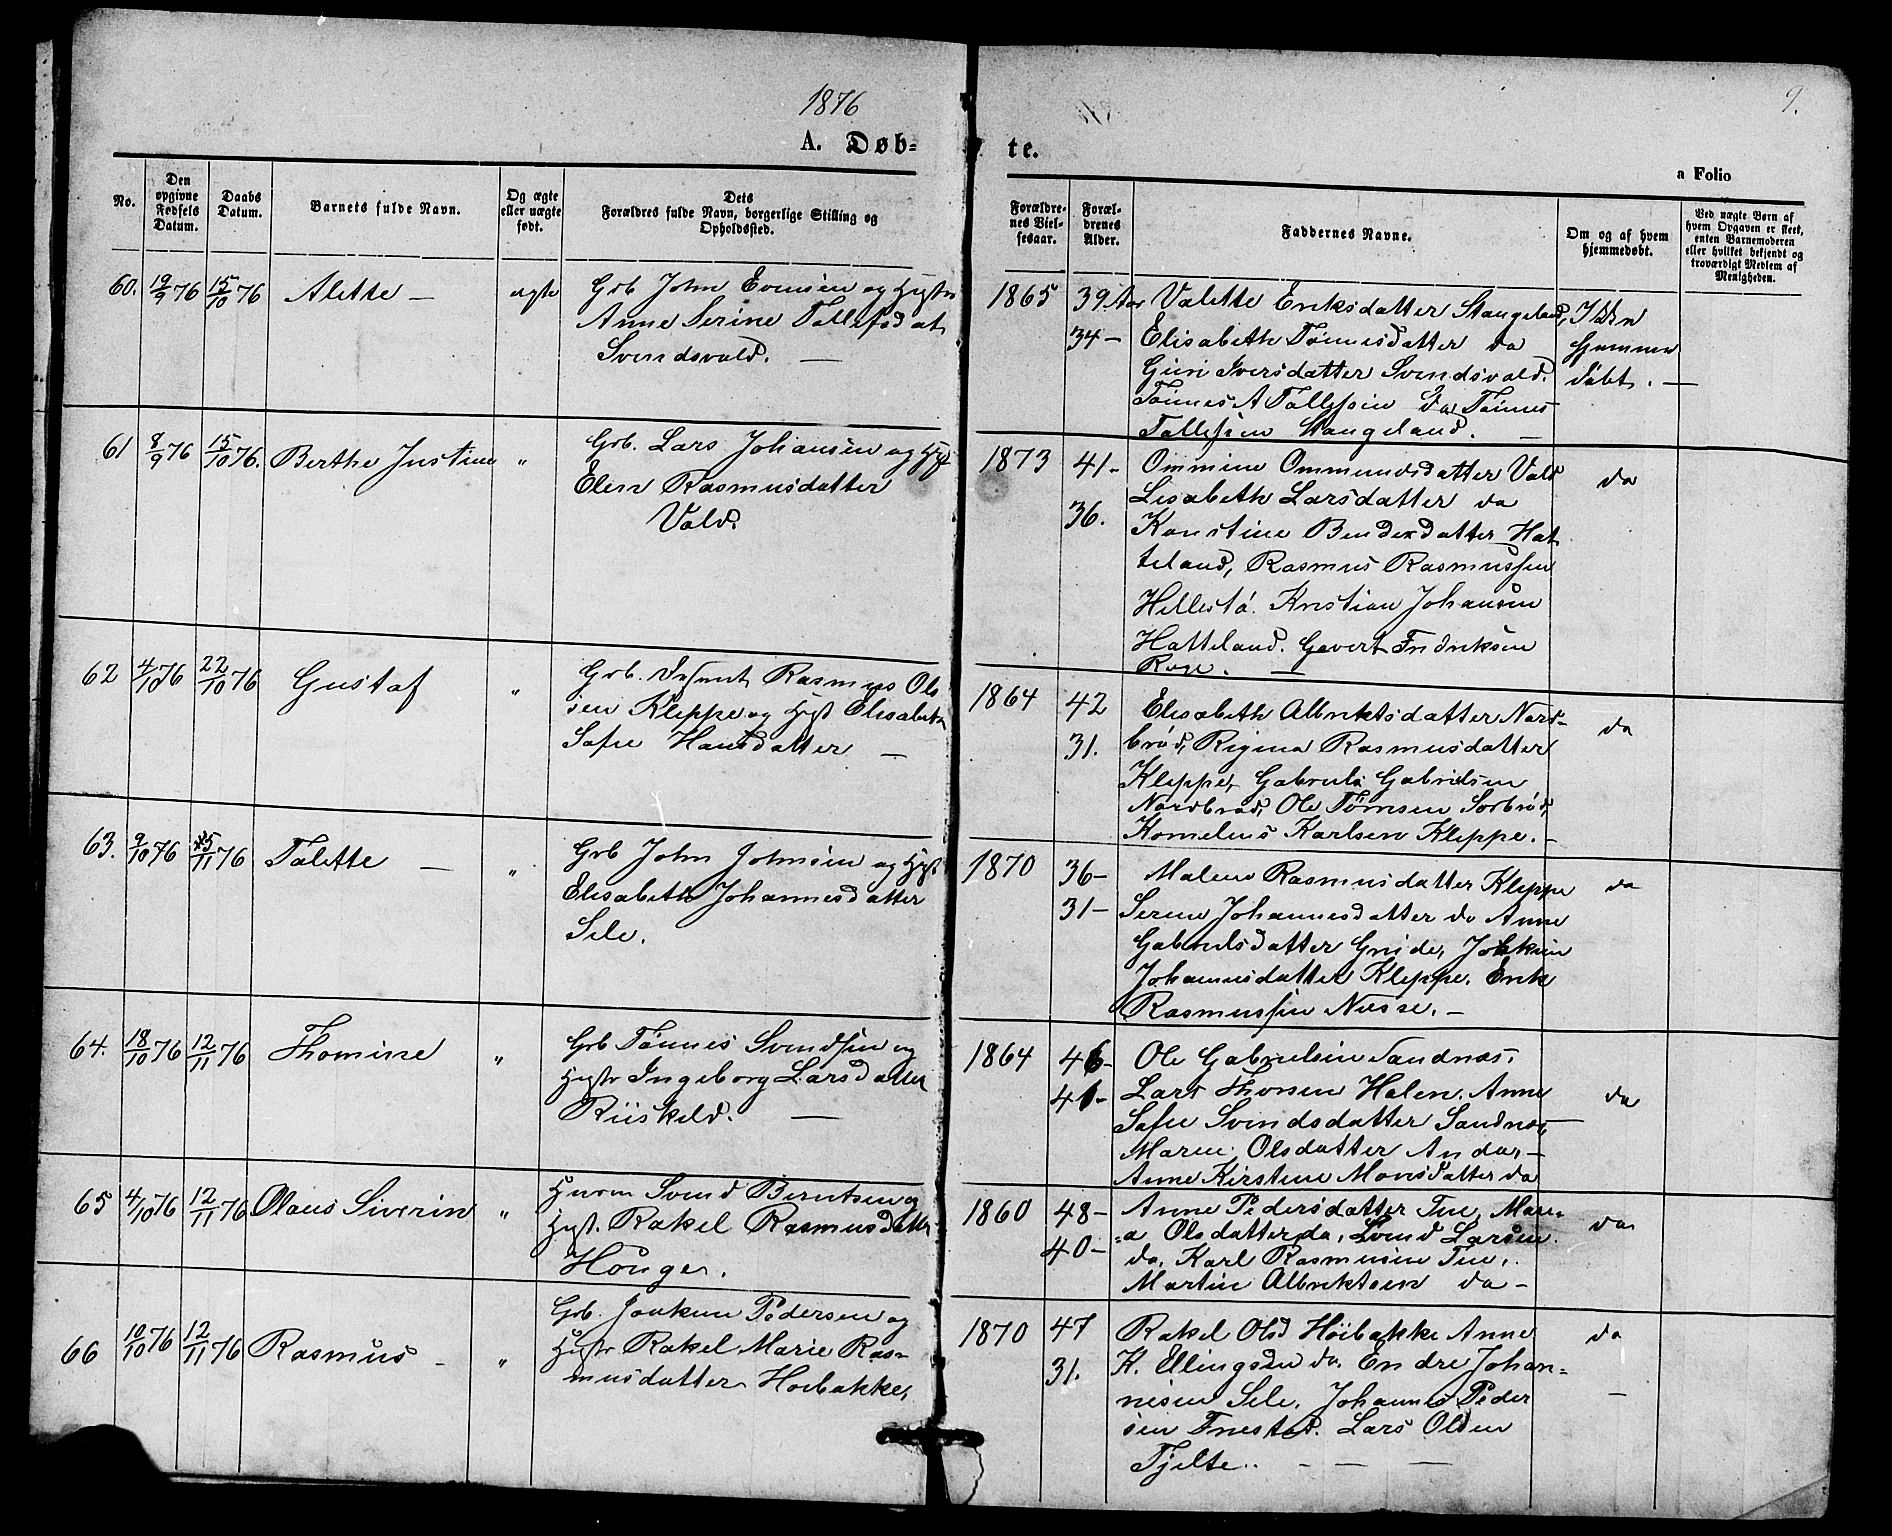 1876
9.
A. Døb-
te.
a Folio
No.
Den opgivne Fødsels Datum.
Daabs Datum.
Barnets fulde Navn.
Og ægte eller uægte født.
Dets
Forældres fulde Navn, borgerlige Stilling og
Opholdssted.
Forældre-nes Viel-sesaar.
Foræl-drenes Alder.
Faddernes Navne.
Om og af hvem hjemmedøbt.
Ved uægte Børn af
hvem Opgaven er skeet,
enten Barnemoderen
eller hvilket bekjendt og
troværdigt Medlem af
Menigheden.
60. 19/9 76 15/10 76 Alette — ægte
Grb John Evensen og Hgstr
Anne Serine Tollefsdat
Svendsvold. —
1865 39 Aar
34 –
Valette Eriksdatter Stangeland,
Elisabeth Tønnesdatter do
Guri Iversdatter Svendsvold.
Tønnes A Tollefsen do Tønnes
Tollefsen Stangeland. —
Ikke
hjemme
døbt. —
61 8/9 76 15/10 76. Berthe Justine "
Grb. Lars Johansen og Hgst
Elen Rasmusdatter
Vold.
1873 41 –
36.
Ommine Ommundsdatter Vold
Lisabeth Larsdatter do
Konstine Bendexdatter Hat
teland, Rasmus Rasmussen
Hellestø. Kristian Johansen
Hatteland. Gevert Fredriksen
Roge. —
do
62 4/10 76 22/10 76 Gustaf "
Grb. Rasmus Ol
sen Kleppe og Hgst Elisabeth
Sofie Hansdatter —
1864 42
31.
Elisabeth Albriktsdatter Nord-
brød, Rigina Rasmusdatter
Kleppe, Gabriel Gabrielsen
Nordbrød, Ole Tørresen Sørbrød,
Kornelius Karlsen Kleppe. –
do
63. 9/10 76 5/11 76 Talette — "
Grb John Johnsen og Hgst
Elisabeth Johannesdatter
Sele.
1870 36 –
31 –
Malene Rasmusdatter Kleppe
Serene Johannesdatter do Anne
Gabrielsdatter Grude, Jokkim
Johannesdatter Kleppe. Erik
Rasmussen Næsse. –
do
64. 18/10 76 12/11 76 Thomine "
Grb Tønnes Svendsen og
Hgstr Ingeborg Larsdatter
Riiskeld. —
1864 46 –
41 –
Ole Gabrielsen Sandnæs.
Lars Thorsen Halen. Anne
Sofie Svendsdatter Sandnæs,
Maren Olsdatter Anda, –
Anne Kirstine Monsdatter do
do
65 4/10 76 12/11 76 Olaus Siverin "
Husm Svend Berntsen og
Hgst. Rakel Rasmusdatter
Houge.
1860 48 –
40 –
Anne Pedersdatter Tue, Mari-
a Olsdatter do, Svend Larsen
do, Karl Rasmusen Tue,
Martin Albriktsen do –
do
66 10/10 76 12/11 76 Rasmus – "
Grb. Joakim Pedersen og
Hgstr Rakel Marie Ras-
musdatter Høibakke,
1870 47
31.
Rakel Olsd Høibakke Anne
K. Ellingsdn do. Endre Johan-
nesen Sele. Johannes Peder
sen Friestad. Lars Olsen
Tjelte. — — —
do
—